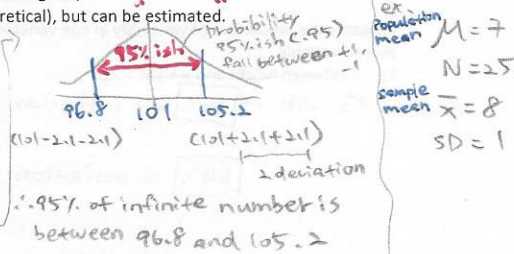 retical), but can be estimated.
probibility
95% ish (.95)
fall between +1,
-1
95% ish
96.8 101 105.2
(101-2.1-2.1) (101+2.1+2.1)
2 deviation
∴ 95% of infinite number is
between 96.8 and 105.2
ex.
Population mean μ = 7
N = 25
sample mean x̄ = 8
SD = 1